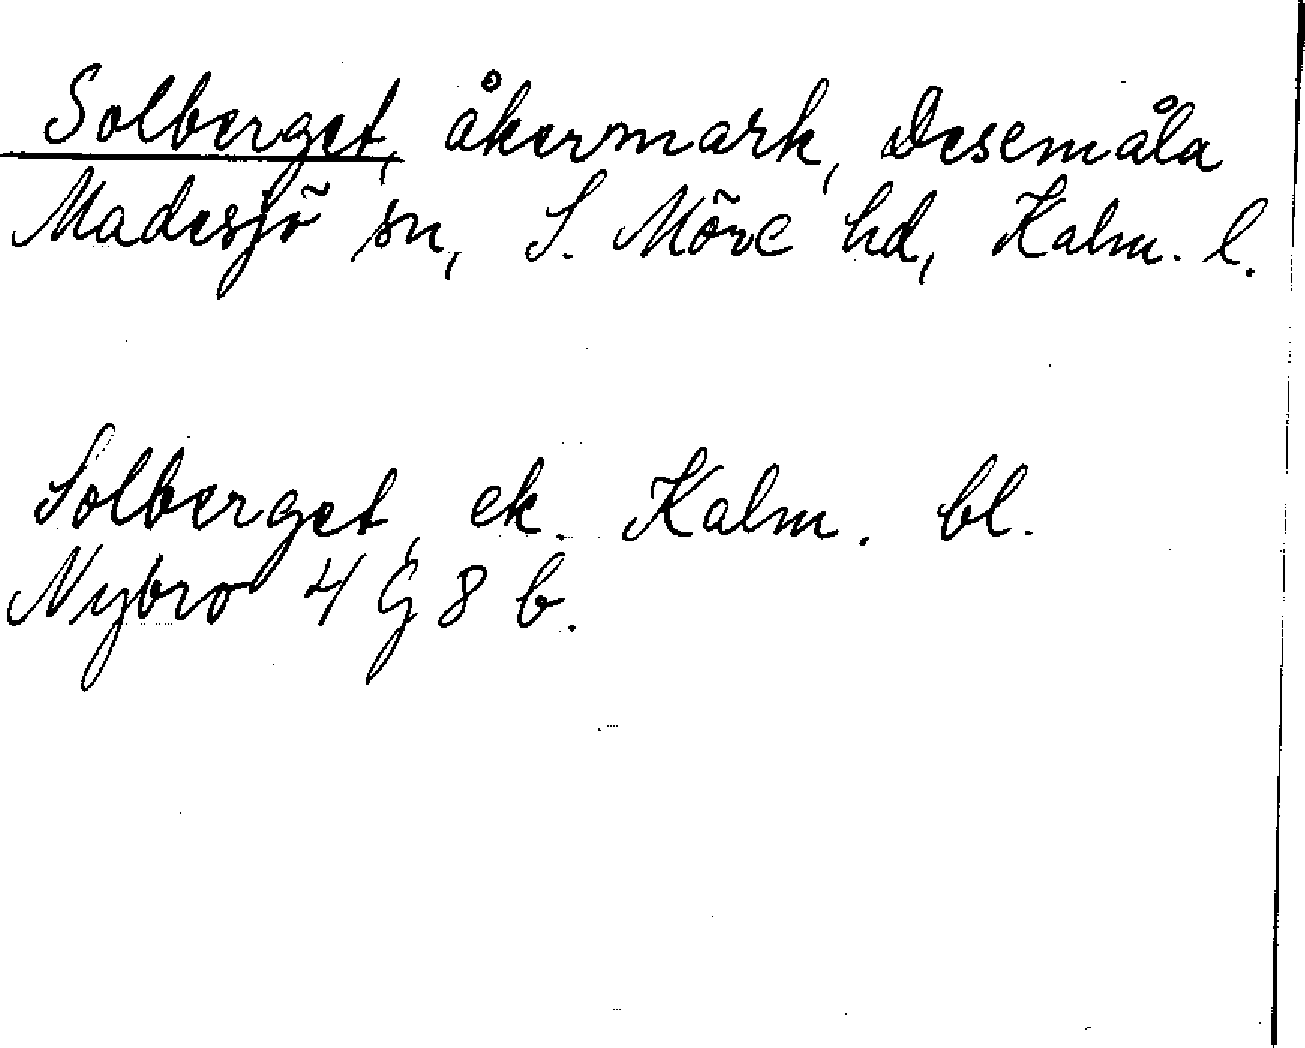 Solberget, åkermark, Desemåla
Madesjö sn, S. Möre hd, Kalm. l.
Solberget, ek. Kalm. bl.
Nybro 4 G 8 b.